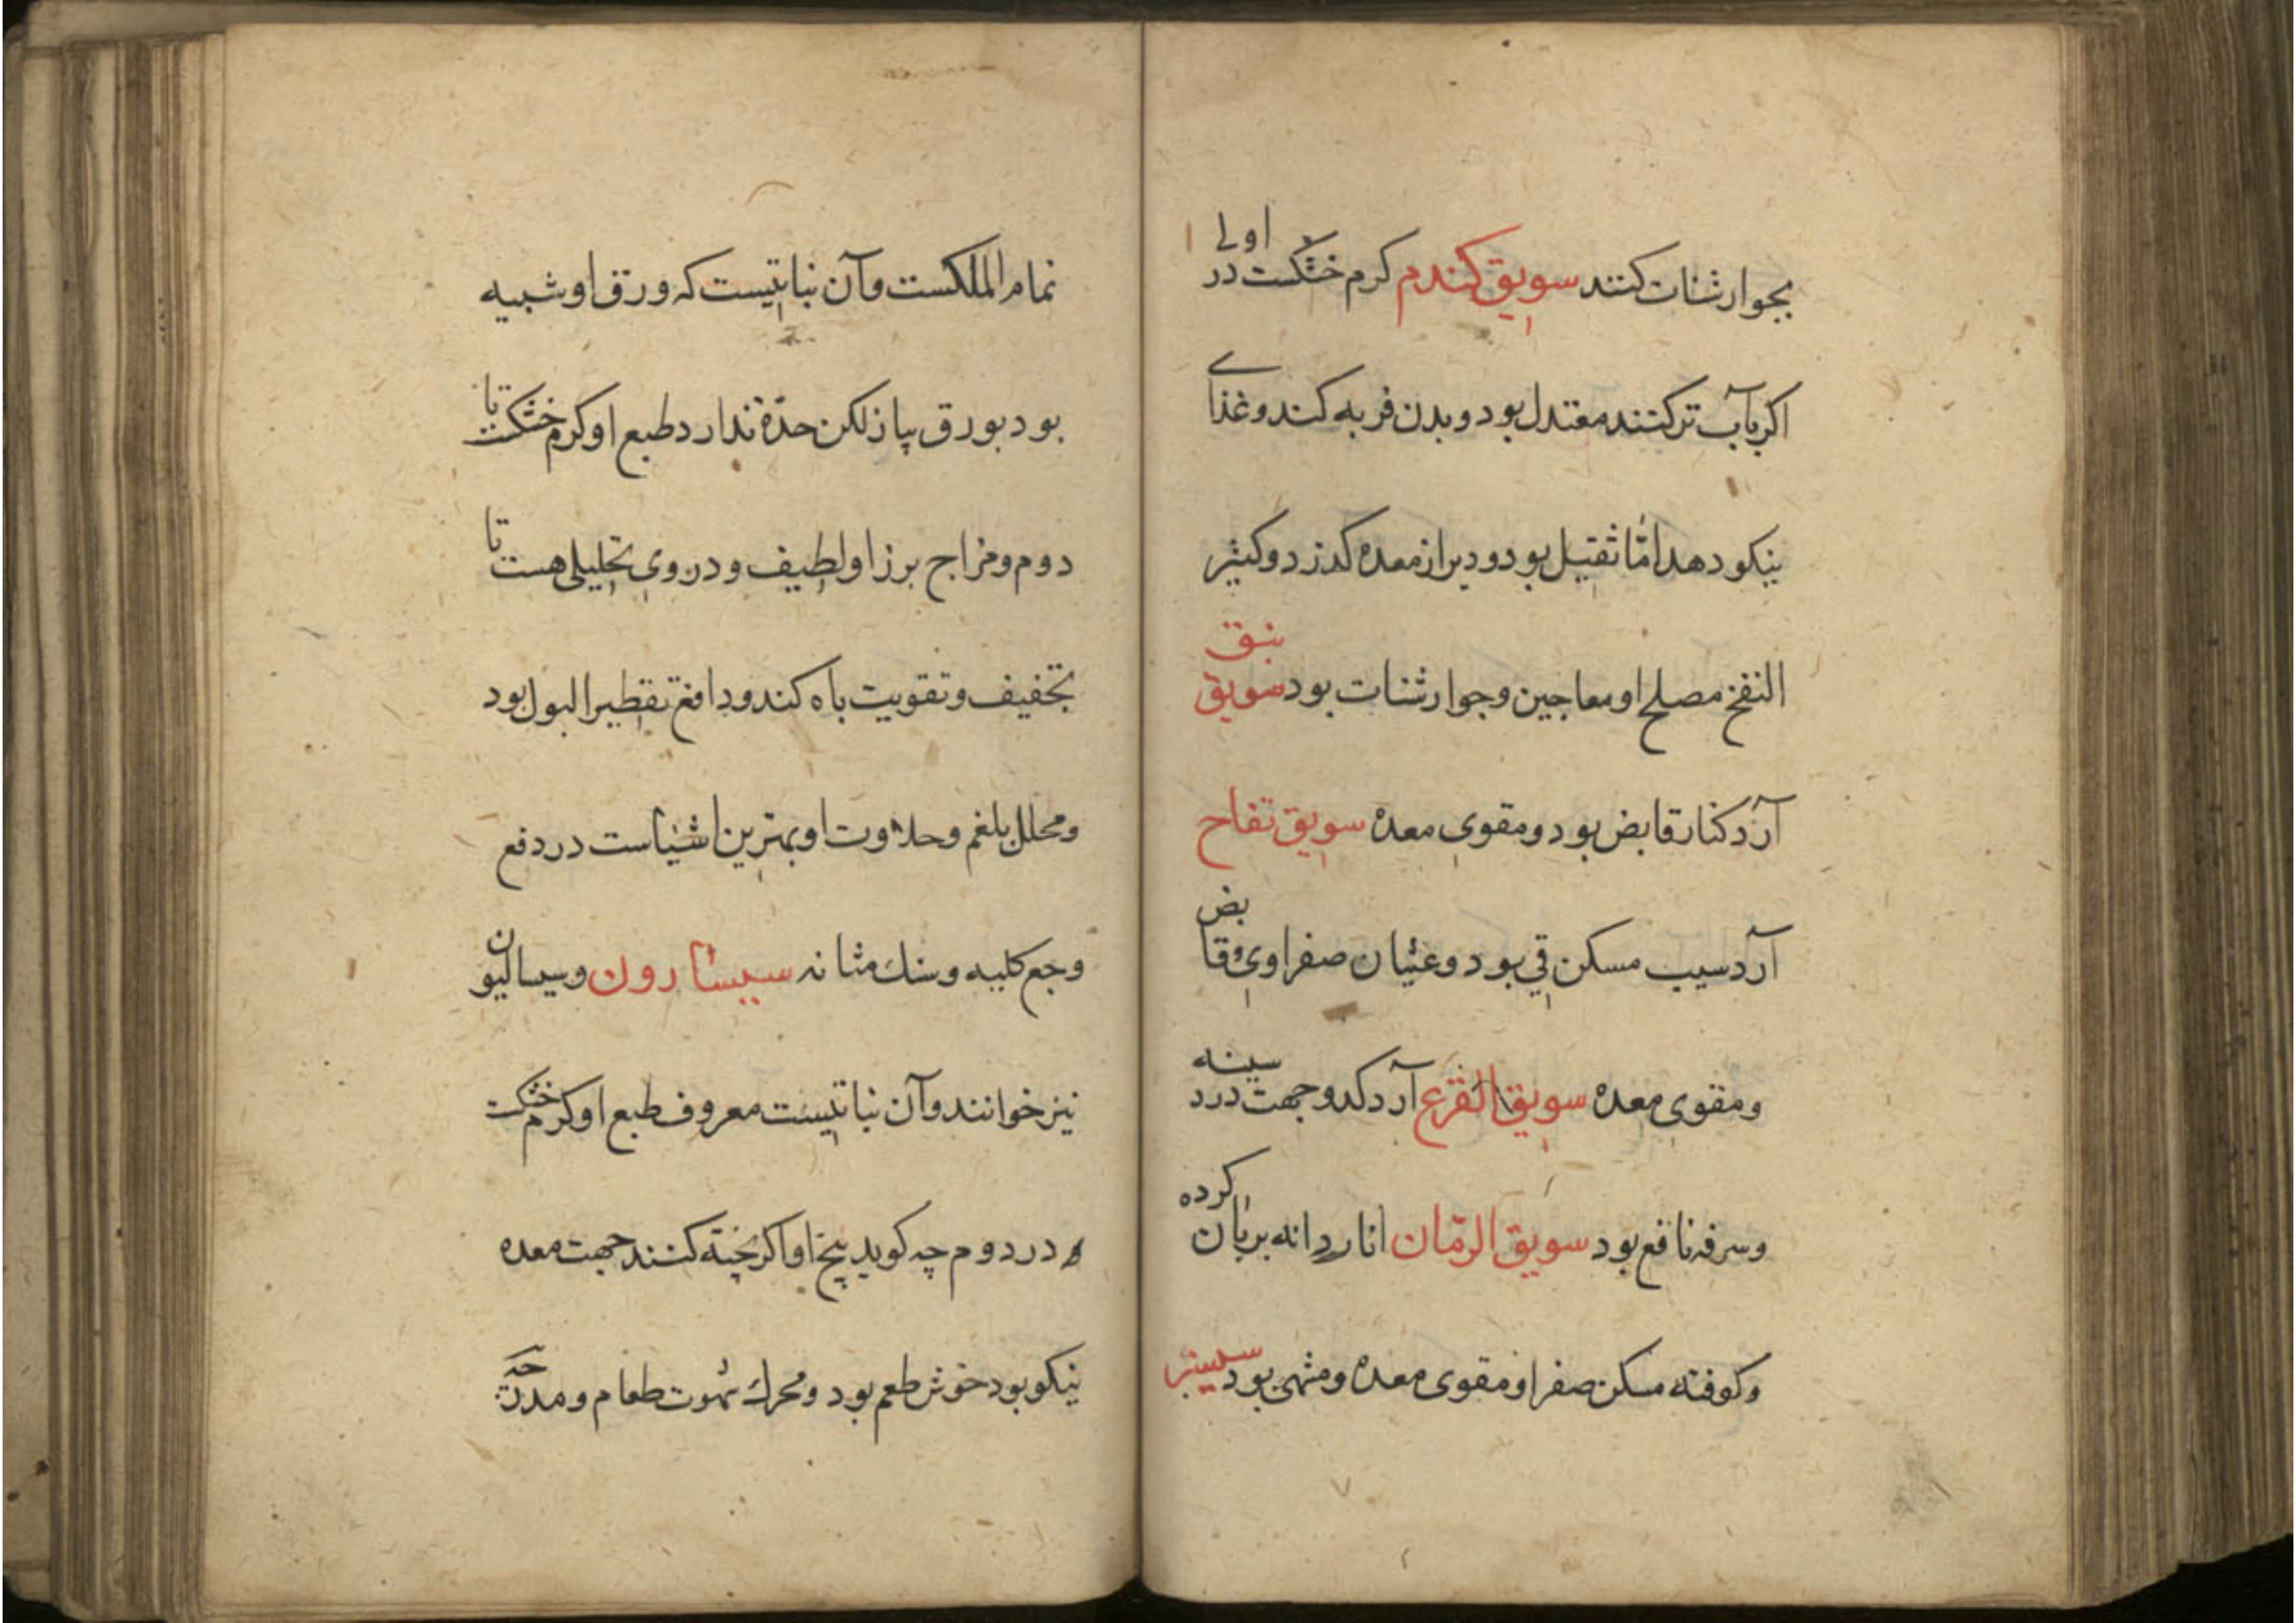 بجوارشنات کنند سویق کندم کرم خشکست در اولی
اکر بآب تر کنند معتدل بود و بدن فربه کند و غذای
نیکو دهد امّا ثقیل بود و دیر از معده کذرد و کثیر
النفخ مصلح او معاجین و جوارشنات بود سویق نبق
آرد کنار قابض بود و مقوی معده سویق تفاح
آرد سیب مسکن قی بود و غثیان صفراوی و قابض
و مقوی معده سویق القرع آرد کدو جهت درد سینه
و سرفه نافع بود سویق الرمّان انار دانه بریان کرده
و کوفته مسکن صفرا و مقوی معده و مشهی بود سیسنبر
نمام الملکست و آن نباتیست که ورق او شبیه
بود بورق پیاز لکن حدّة ندارد طبع او کرم خشکست تا
دوم و مزاج برز او لطیف و در وی تحلیلی هست تا
تجفیف و تقویت باه کند و دافع تقطیر البول بود
و محلل بلغم و حلاوت او بهترین اشیاست در دفع
وجع کلیه و سنك مثانه سیسارون و سیسالیون
نیز خوانند و آن نباتیست معروف طبع او کرم خشکست
در دوم چه کوید بیخ او اکر پخته کنند جهت معده
نیکو بود خوش طعم بود و محرك شهوت طعام و مدر